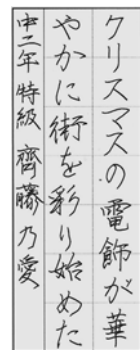 クリスマスの電飾が華
やかに街を彩り始めた
中二年 特級 齊藤乃愛